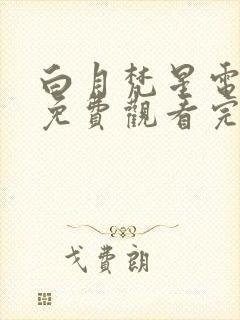 白月梵星電
免費觀看完
戈費朗